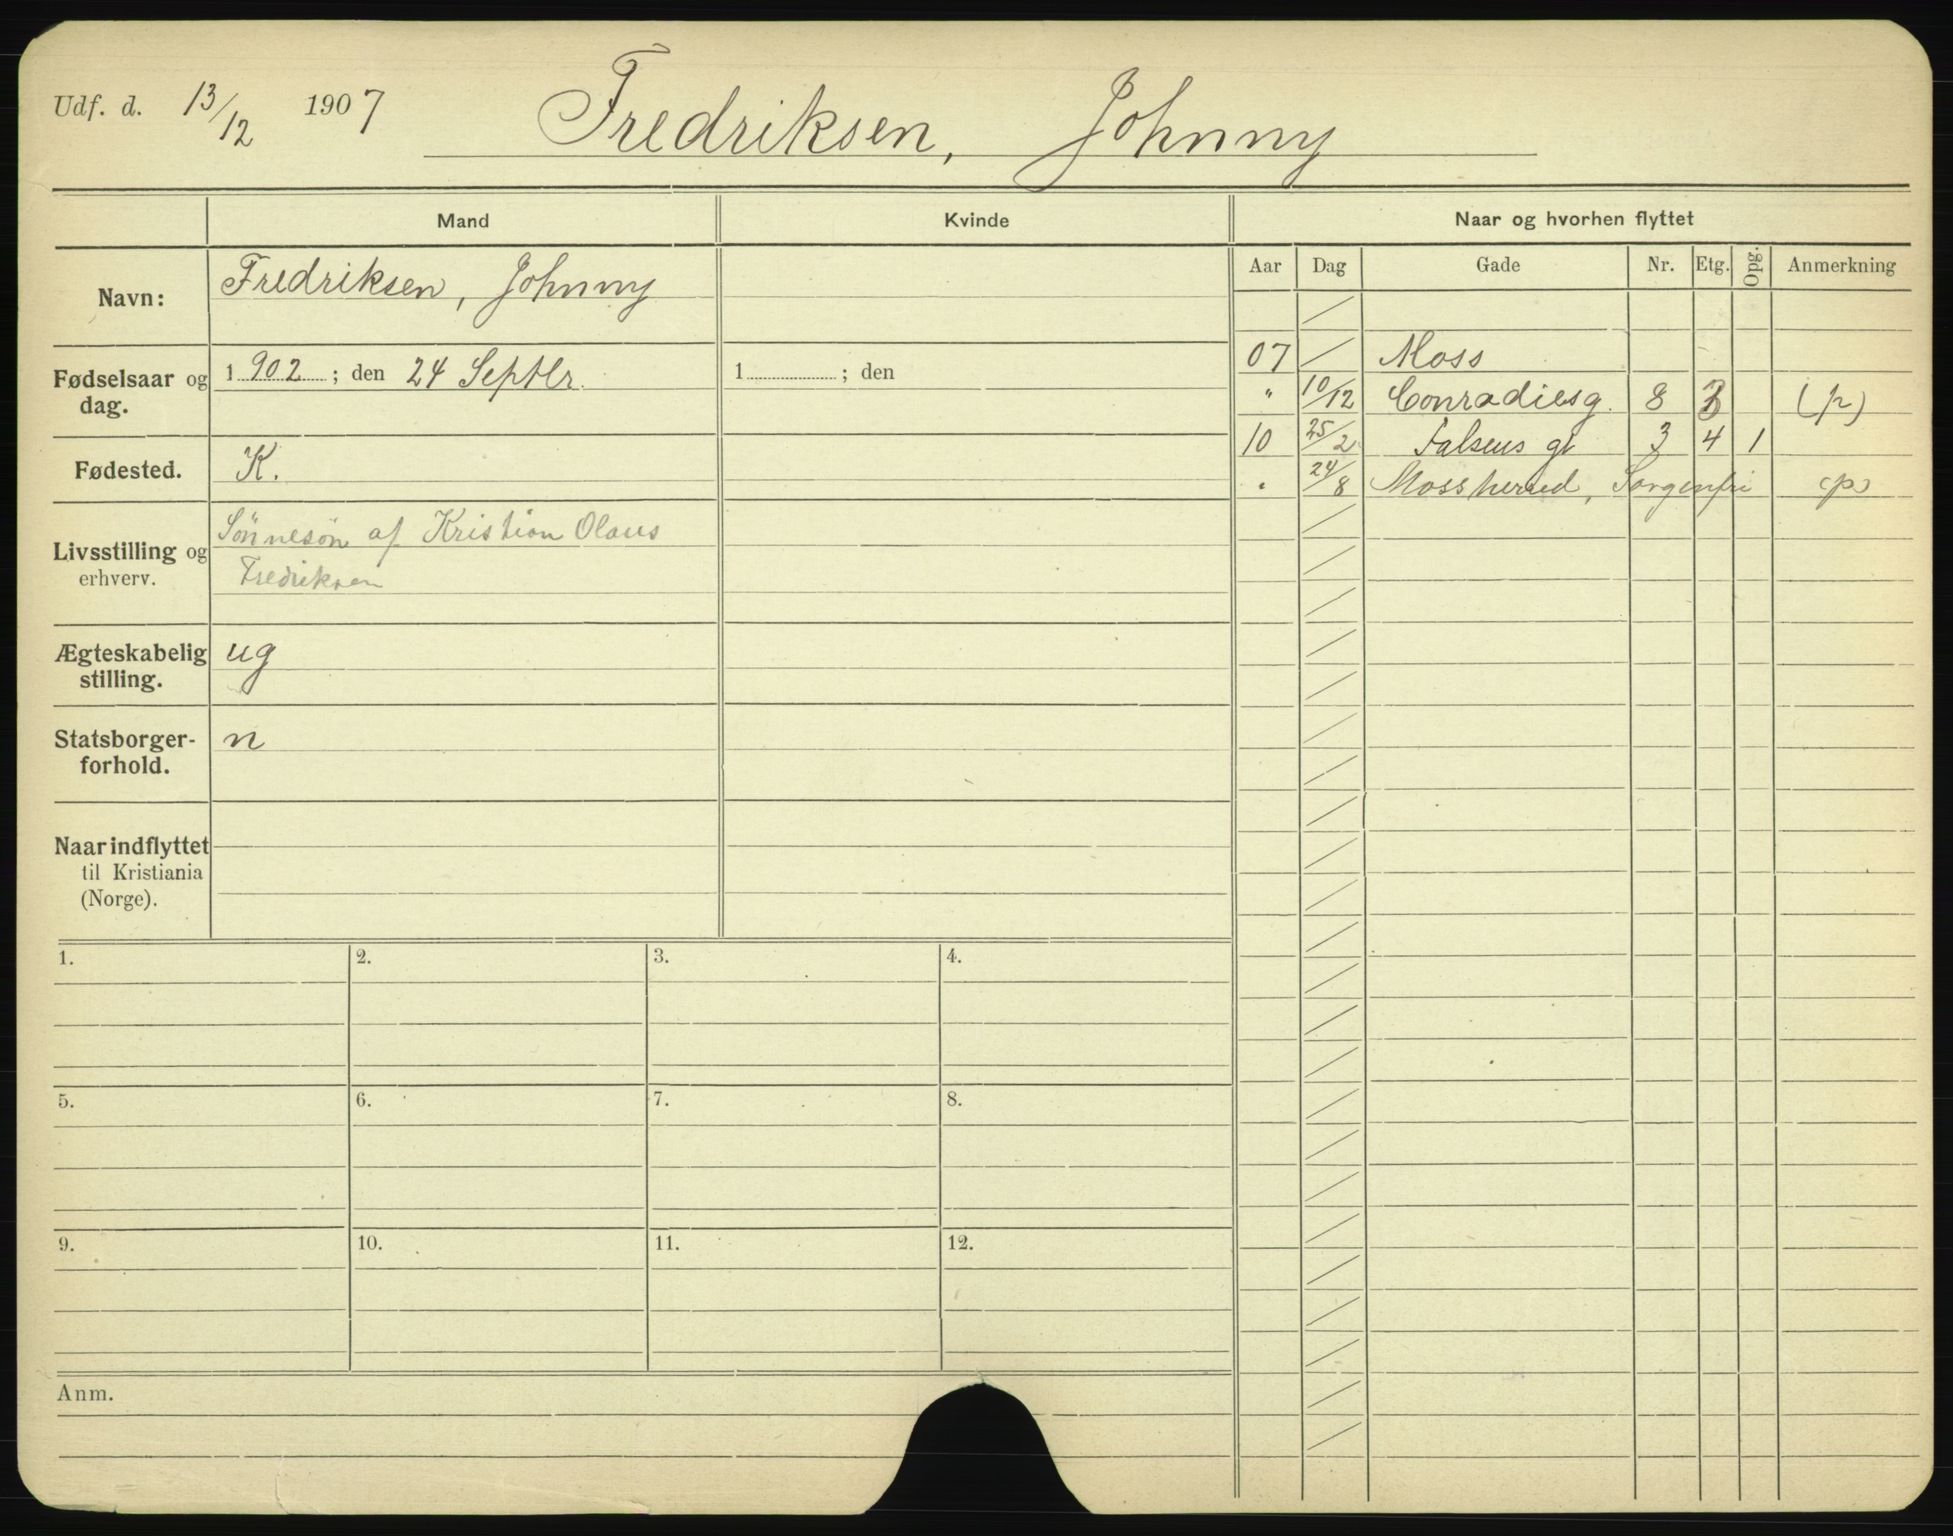 Udf. d. 13/12 1907 Fredriksen, Johnny
Mand Kvinde Naar og hvorhen flyttet
Aar Dag Gade Nr. Etg. Opg. Anmerkning
Navn: Fredriksen, Johnny
07 Moss
Fødselsaar og dag. 1902; den 24 Septbr. 1 ; den
" 10/12 Conradiesg. 8 3 (p)
10 25/2 Falsens gt 3 4 1
Fødested. K.
" 24/8 Moss herred, Sorgenfri (p)
Livsstilling og Sönnesön af Kristian Olaus
erhverv. Fredriksen
Ægteskabelig ug
stilling.
Statsborger- n
forhold.
Naar indflyttet
til Kristiania
(Norge).
1. 2. 3. 4.
5. 6. 7. 8.
9. 10. 11. 12.
Anm.